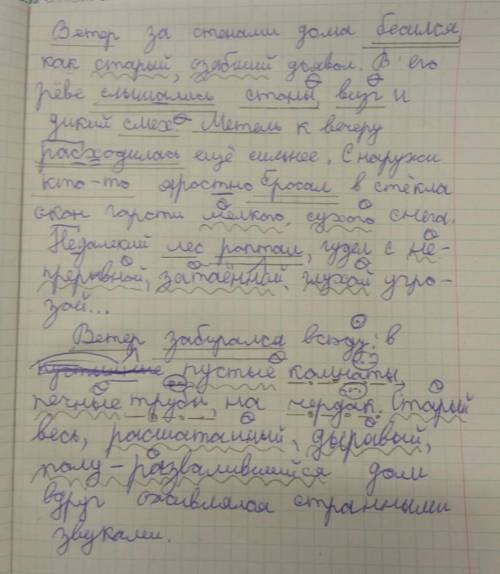 Ветер за стенами дома бесился,
как старый, озябший дьявол. В его
рёве слышались стоны, визг и
дикий смех. Метель к вечеру
расходилась ещё сильнее. Снаружи
кто-то яростно бросал в стёкла
окон горсти мелкого, сухого снега.
Недалекий лес роптал, гудел с не-
прерывной, затаённой, глухой угро-
зой...
Ветер забирался всюду: в
пустые комнаты,
печные трубы, на чердак. Старый
весь, расшатанный, дыравый,
полу-развалившийся дом
вдруг оживлялся странными
звуками.